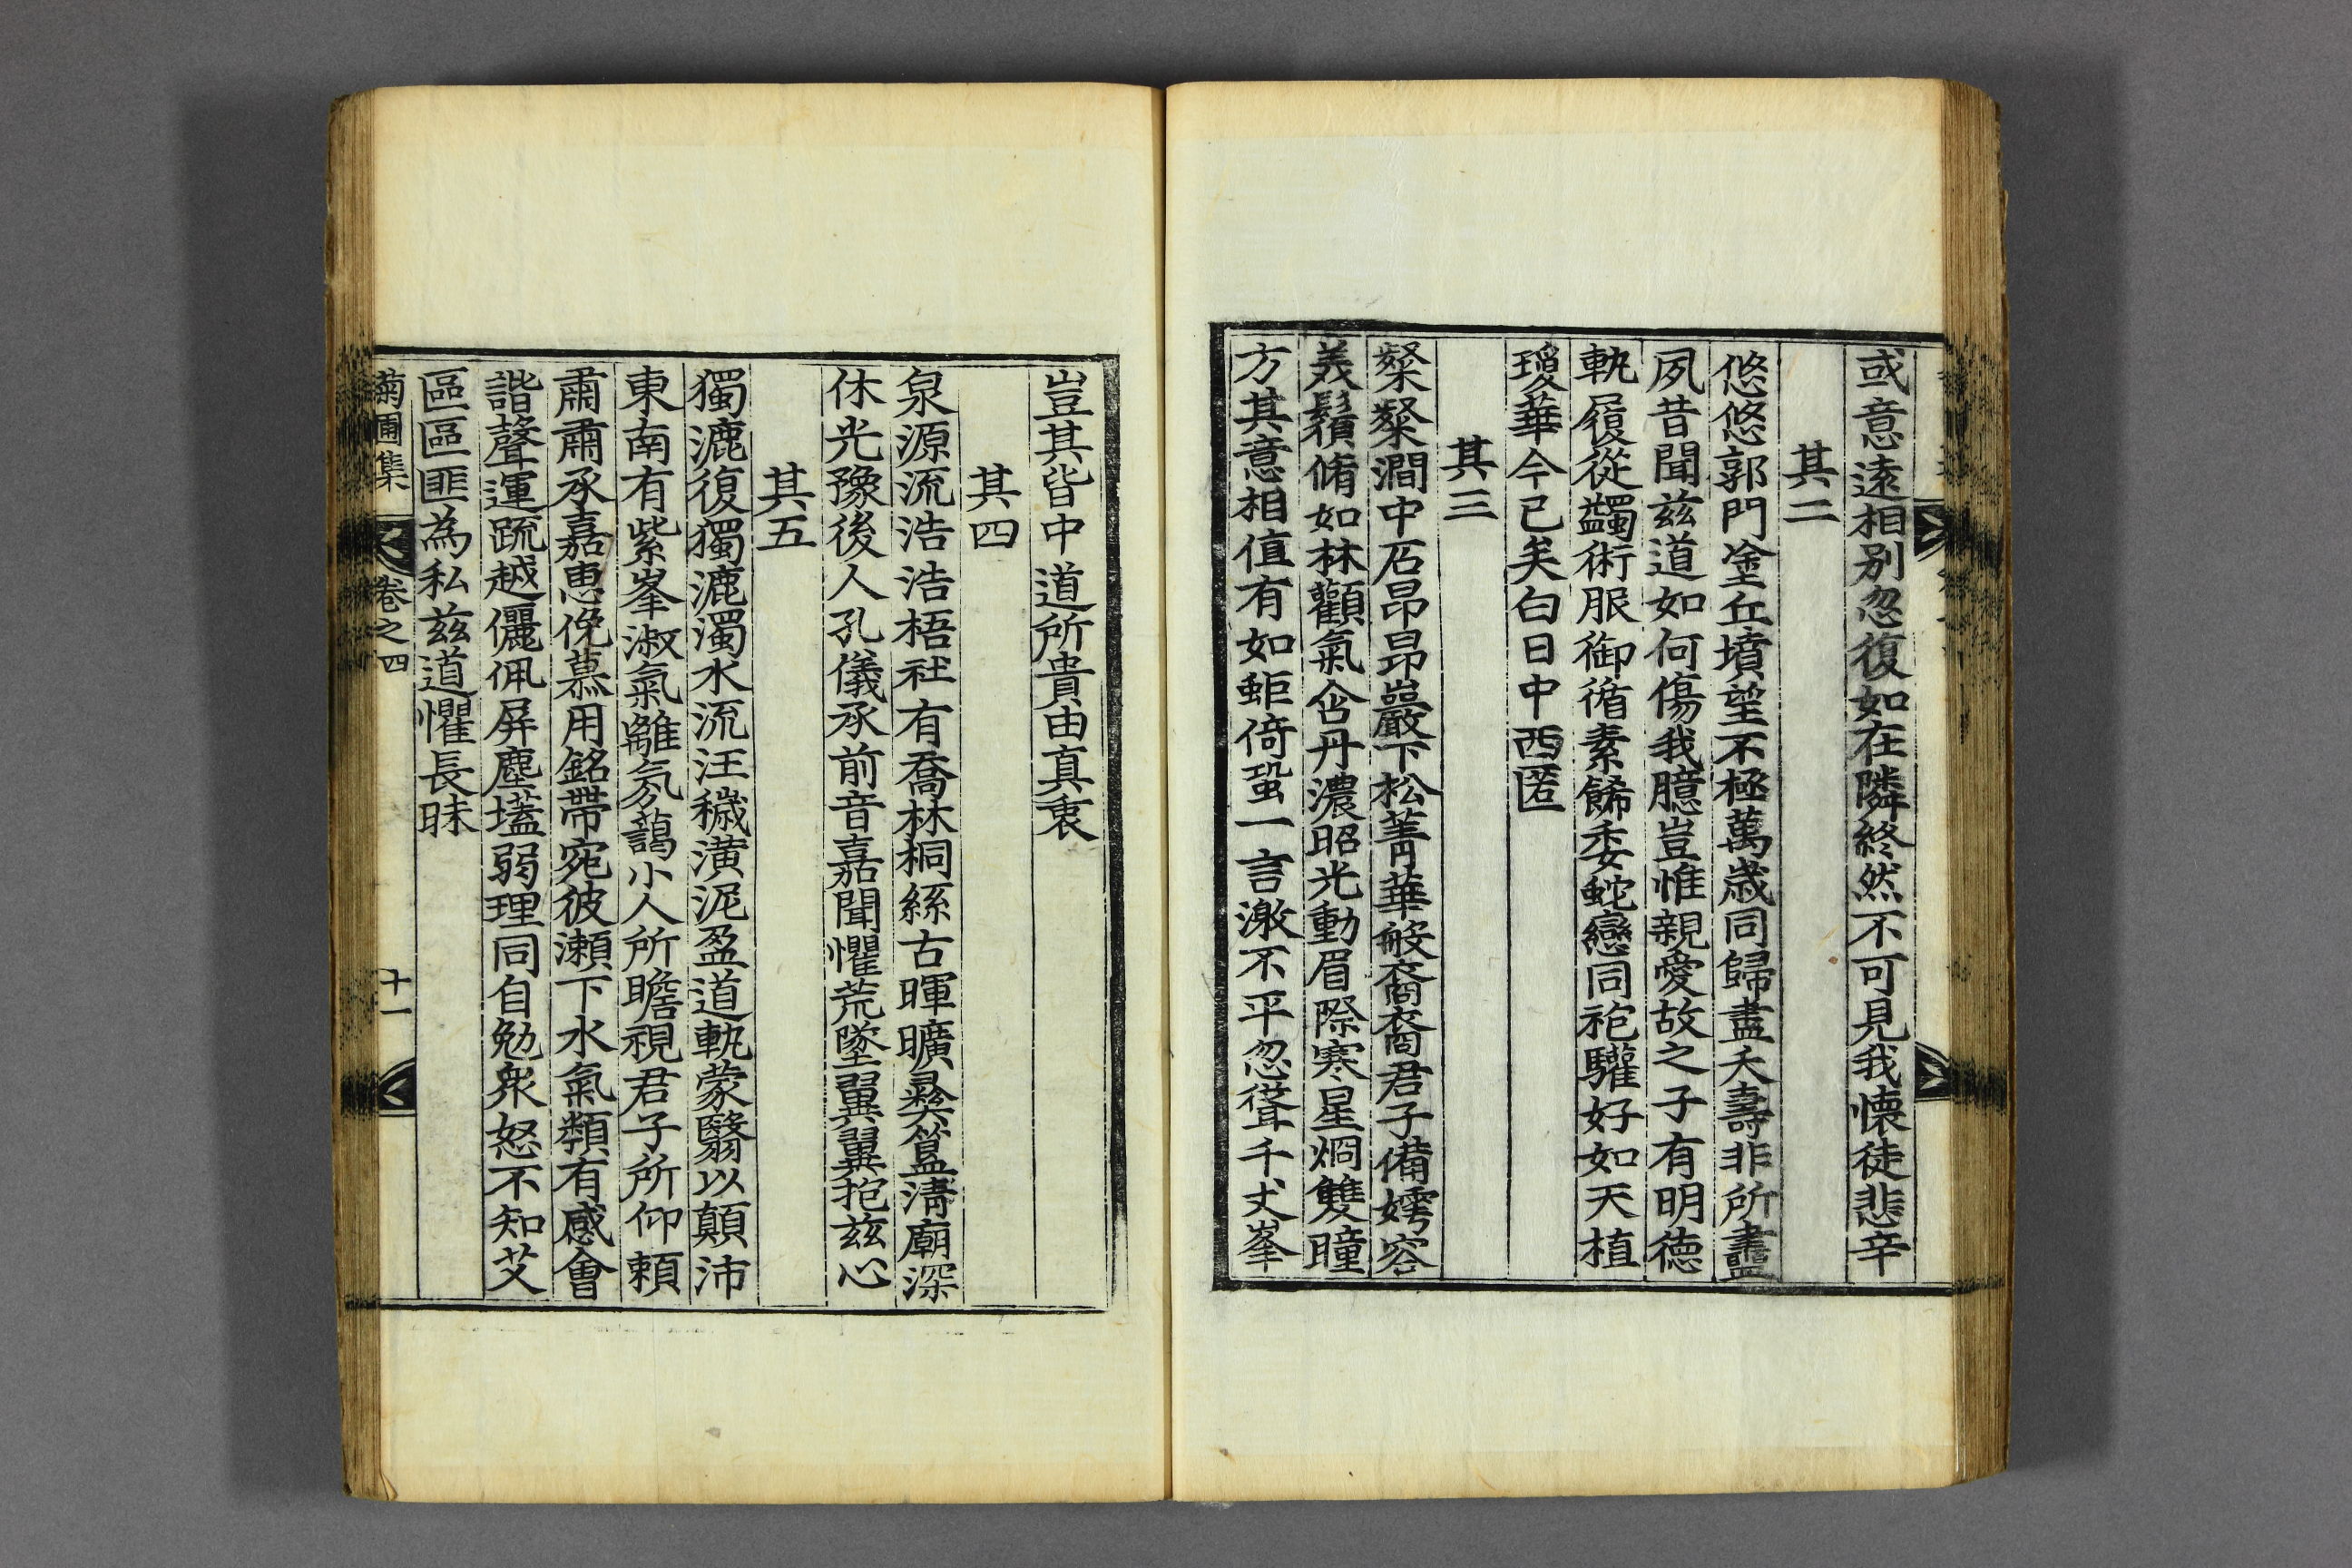 或意遠相別忽復如在隣終然不可見我懐徒悲辛
其二
悠悠郭門塗丘墳望不極萬歲同歸盡夭壽非所衋
夙昔聞兹道如何傷我臆豈惟親愛故之子有明德
執履從蠲術服御循素餙委蛇戀同袍驩好如天植
瑷華今已矣白日中西匿
其三
粲粲澗中石昂昂巖下松菁華般裔裔君子備嫮容
美鬚脩如林顴氣含丹濃昭光動眉際寒星烱雙瞳
方其意相值有如蚷倚蛩一言激不平忽聳千丈峯
豈其皆中道所貴由真衷
其四
泉源流浩浩梧社有喬林桐絲古暉曠彝簋淸廟深
休光豫後人孔儀承前音嘉聞懼荒墜翼翼抱兹心
其五
獨漉復獨漉濁水流汪穢潢泥盈道軌蒙翳以顛沛
東南有紫峯淑氣雖氛藹小人所瞻視君子所仰頼
肅肅承嘉惠俛慕用銘帶宛彼瀨下水氣類有感會
諧聲運疏越儷佩屏塵壒弱理同自勉衆怒不知艾
區區匪為私兹道懼長昧
菊圃集 卷之四 十一